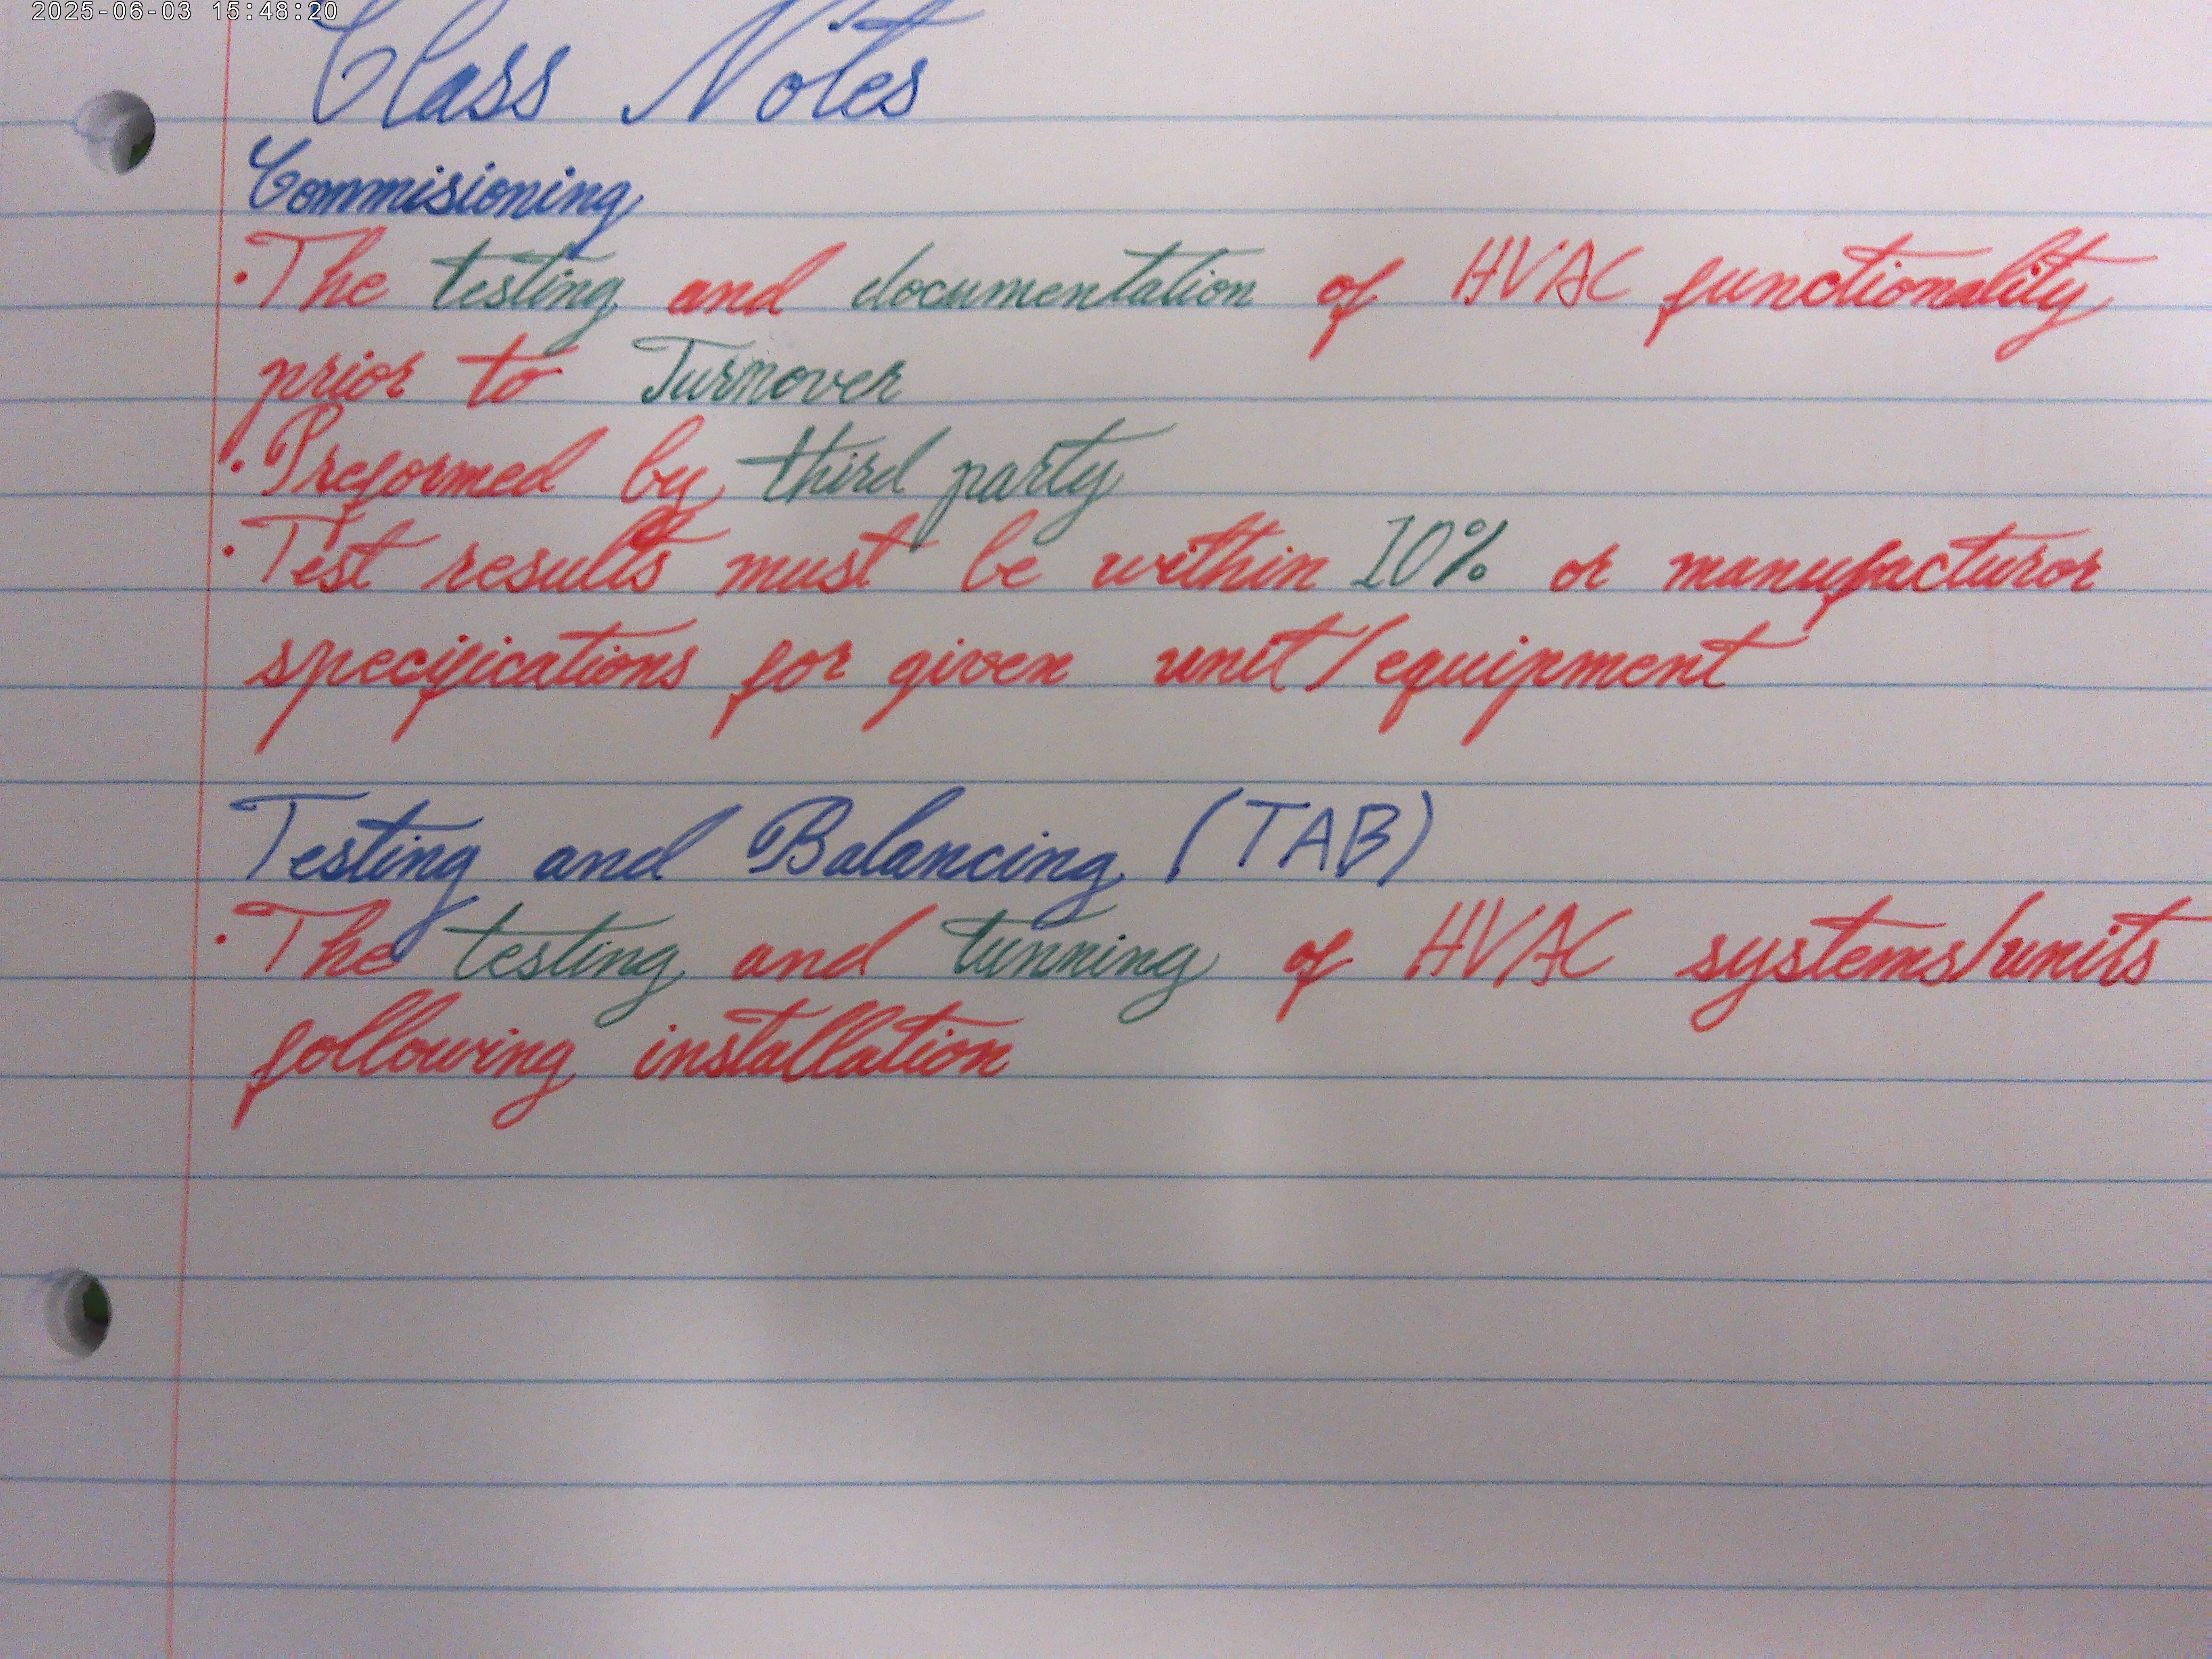 2025-06-03 15:48:20
Class Notes
Commisioning
·The testing and documentation of HVAC functionality
prior to Turnover
·Preformed by third party
·Test results must be within 10% or manufacturor
specifications for given unit/equipment
Testing and Balancing (TAB)
·The testing and tunning of HVAC systems/units
following installation